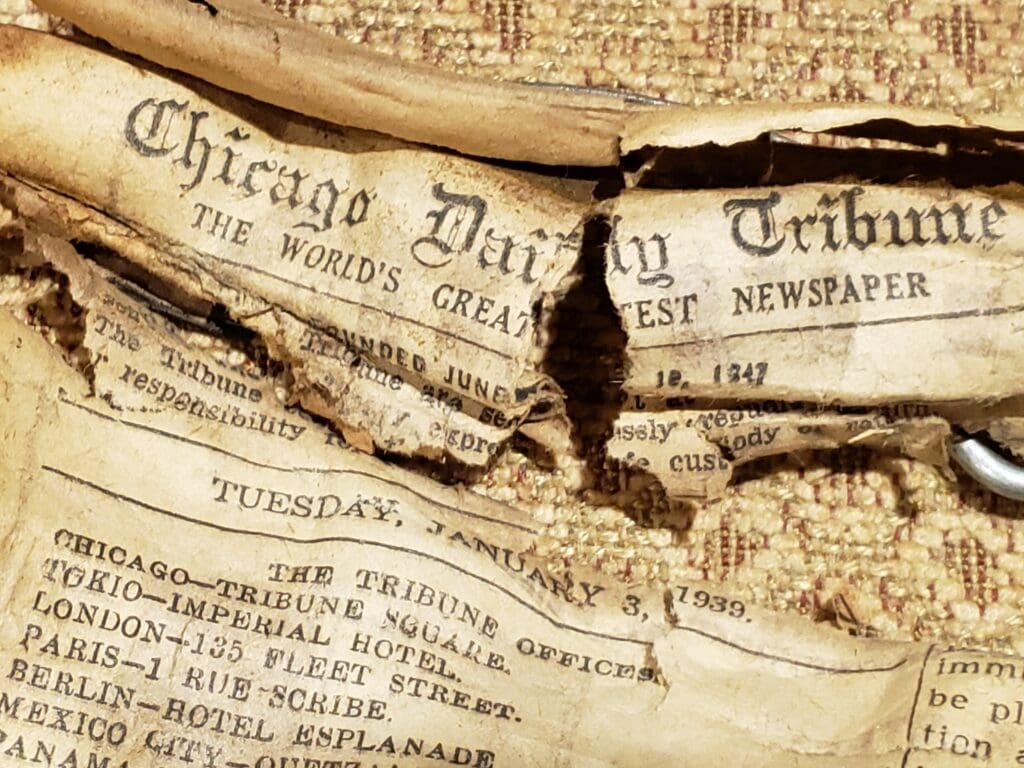 Chicago Daily Tribune
THE WORLD'S GREATEST NEWSPAPER
FOUNDED JUNE 10, 1847
The Tribune
responsibility
expre
custody or return.
TUESDAY, JANUARY 3, 1939.
THE TRIBUNE OFFICES
CHICAGO—TRIBUNE SQUARE.
TOKIO—IMPERIAL HOTEL.
LONDON—135 FLEET STREET.
PARIS—1 RUE SCRIBE.
BERLIN—HOTEL ESPLANADE
MEXICO CITY—
PANAMA
immu
be pl
tion